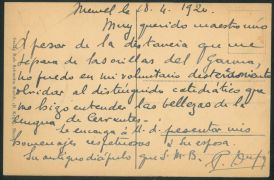 Memel le 28. 4. 1920.
Muy querido maestro mio
A pesar de la distancia que me
separa de las orillas del Garona,
no puedo en mi voluntario destierro
olvidar al distinguido catedratico que
me hizo entender las bellezas de la
lengua de Cervantes.
Le encargo á U. d. presentar mis
homenajes respetuosos a Su esposa.
Su antiguo discipulo que S. M. B.